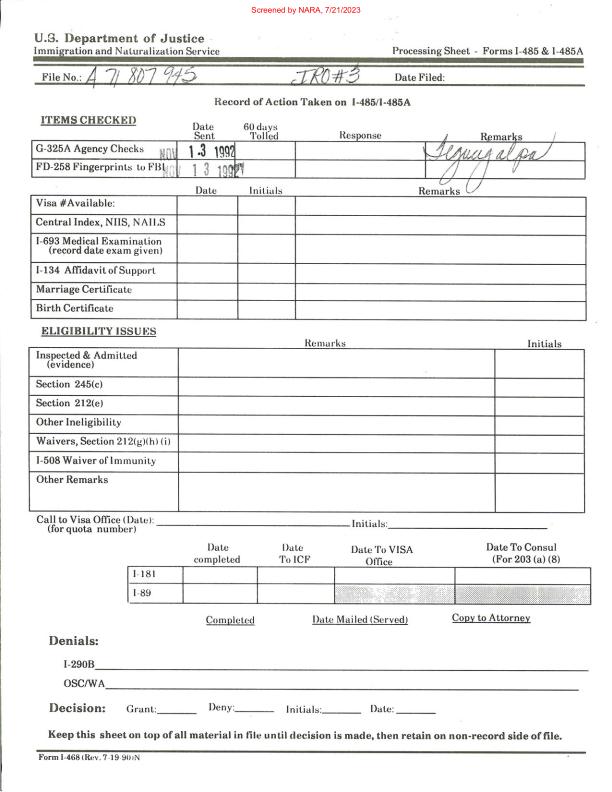 Screened by NARA, 7/21/2023
U.S. Department of Justice
Immigration and Naturalization Service Processing Sheet - Forms I-485 & I-485A
File No.: A 71 807 945 IRO#3 Date Filed:
Record of Action Taken on I-485/I-485A
ITEMS CHECKED
Date Sent 60 days Tolled Response Remarks
G-325A Agency Checks NOV 13 1992 Tegucigalpa
FD-258 Fingerprints to FBI NOV 13 1992
Date Initials Remarks
Visa #Available:
Central Index, NIIS, NAILS
I-693 Medical Examination
(record date exam given)
I-134 Affidavit of Support
Marriage Certificate
Birth Certificate
ELIGIBILITY ISSUES
Remarks Initials
Inspected & Admitted
(evidence)
Section 245(c)
Section 212(e)
Other Ineligibility
Waivers, Section 212(g)(h)(i)
I-508 Waiver of Immunity
Other Remarks
Call to Visa Office (Date): Initials:
(for quota number)
Date completed Date To ICF Date To VISA Office Date To Consul (For 203 (a) (8)
I-181
I-89
Completed Date Mailed (Served) Copy to Attorney
Denials:
I-290B
OSC/WA
Decision: Grant: Deny: Initials: Date:
Keep this sheet on top of all material in file until decision is made, then retain on non-record side of file.
Form I-468 (Rev. 7-19-90)N